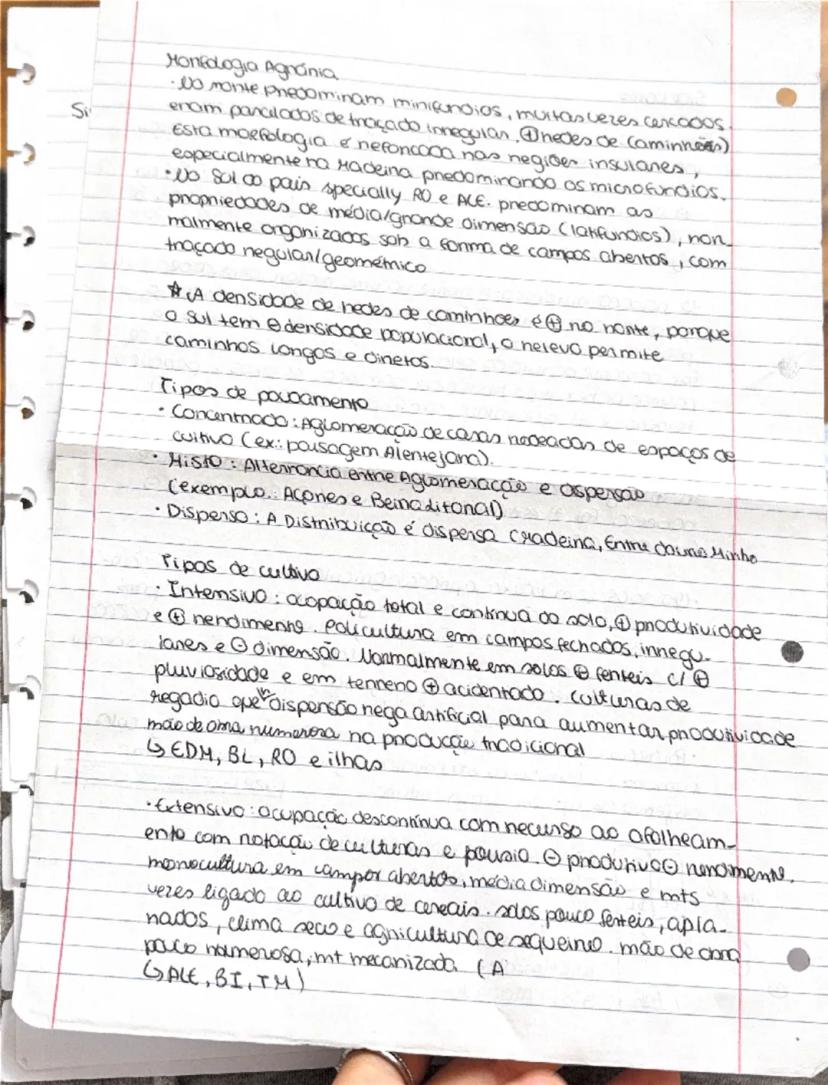 Morfologia Agrária
· No norte predominam minifundios, muitas vezes cercados.
eram parcelados de traçado irregular. ⊕ redes de caminhões)
Esta morfologia é reforçada nas regiões insulares,
especialmente na Madeira predominando os microfundios.
· No Sul do país specially RO e ALE. predominam as
propriedades de média/grande dimensão (latifundios), nor_
malmente organizados sob a forma de campos abertos, com
traçado regular/geométrico
☆ A densidade de redes de caminhos é ⊕ no norte, porque
o sul tem ⊖ densidade populacional, o relevo permite
caminhos longos e diretos.
Tipos de povoamento
· Concentrado: Aglomeracção de casas rodeadas de espaços de
cultivo (ex: paisagem Alentejana).
· Misto: Alternancia entre Aglomeracção e dispersão
(exemplo: Açores e Beira litoral)
· Disperso: A Distribuição é dispersa (Madeira, Entre douro Minho
Tipos de cultivo
· Intensivo: ocopação total e continua do solo, ⊕ produtividade
e ⊕ rendimento. policultura em campos fechados, irregu_
lares e ⊖ dimensão. Normalmente em solos ⊕ ferteis c/ ⊕
pluviosidade e em terreno ⊕ acidentado. culturas de
regadio que dispersão rega artificial para aumentar produtividade
mão de oma numerosa na producção tradicional
↳ EDM, BL, RO e ilhas
· Extensivo: ocupação descontinua com recurso ao afolheam_
ento com rotação de culturas e pousio. ⊖ produtivo ⊖ rendimento.
monocultura em campos abertos, média dimensão e mts
vezes ligado ao cultivo de cereais. solos pouco ferteis, apla_
nados, clima seco e agricultura de sequeiro. mão de obra
pouco numerosa, mt mecanizada. (A
↳ ALE, BI, TM)